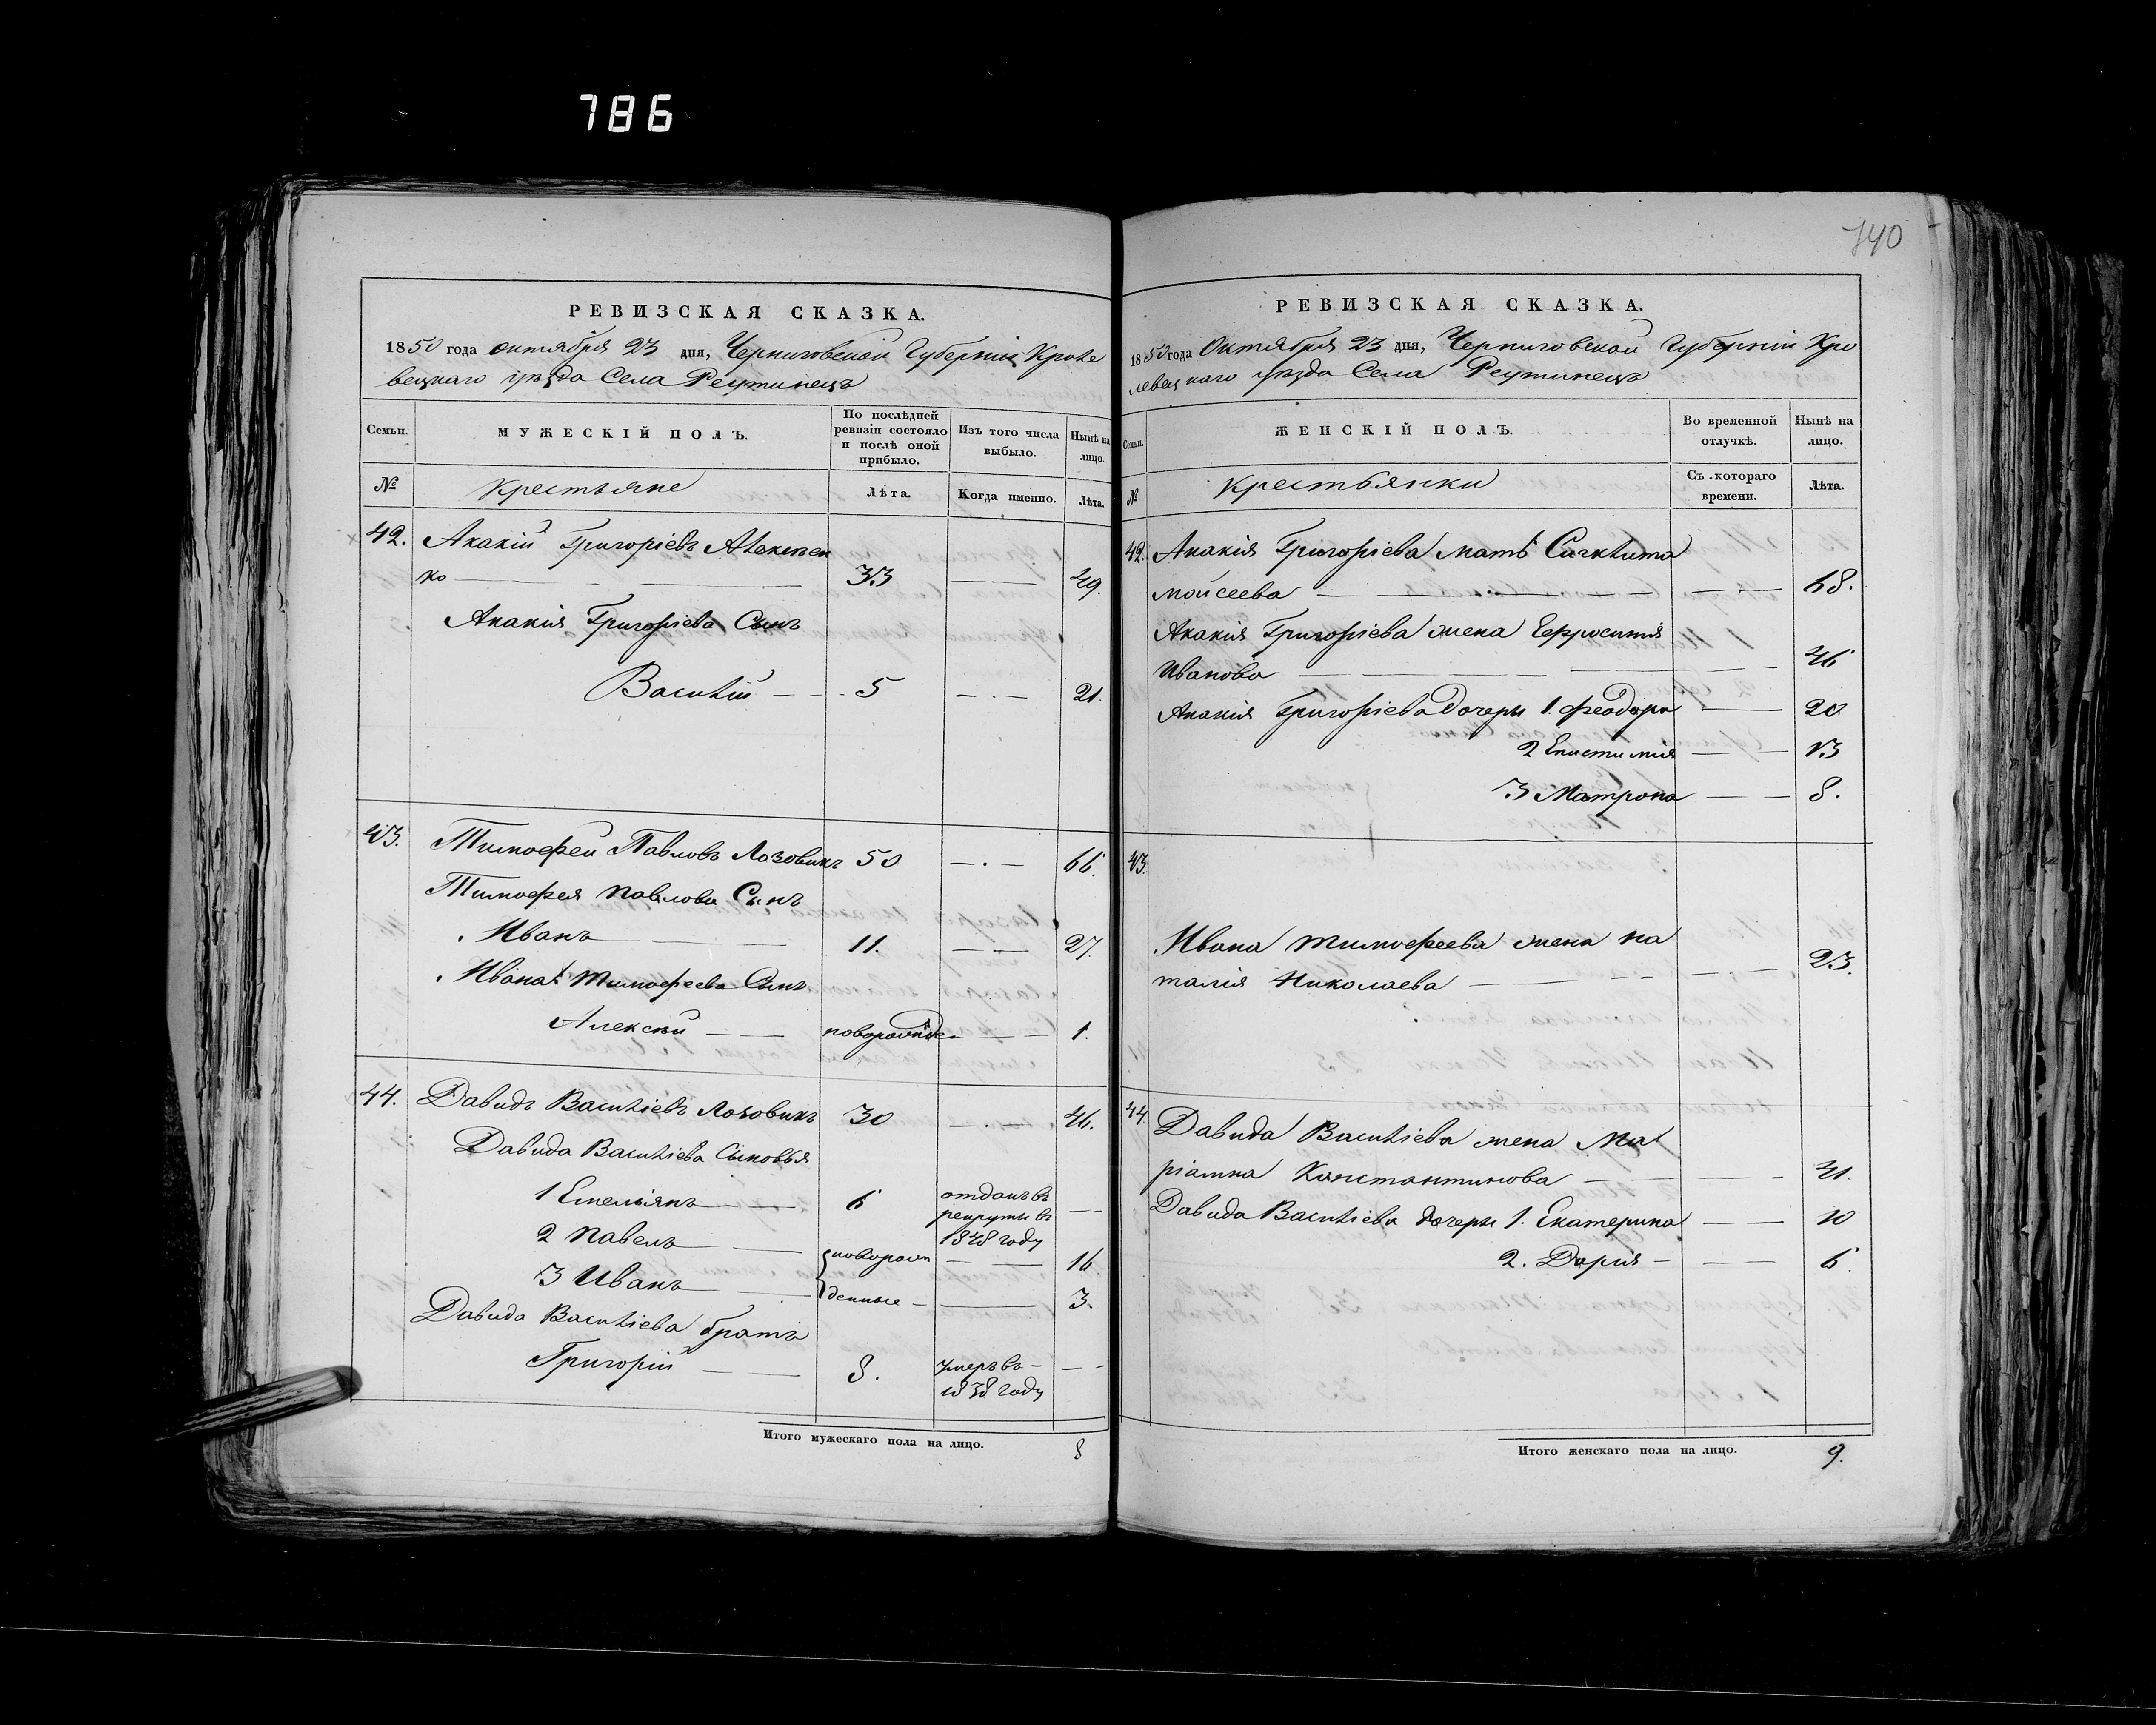 786
РЕВИЗСКАЯ СКАЗКА.
1850 года октября 23 дня, Черниговской Губерніи Кроле
вецкаго уѣзда Села Реутинецъ
Семьи.
МУЖЕСКІЙ ПОЛЪ.
По послѣдней ревизіи состояло и послѣ оной прибыло.
Изъ того числа выбыло.
Нынѣ на лицо.
№
Крестьяне
Лѣта.
Когда именно.
Лѣта.
42. Акакій Григоріевъ Алексѣен
ко 33 49.
Акакія Григоріева Сынъ
Василій 5 21.
43. Тимофей Павловъ Лозовикъ 50 66.
Тимофея Павлова Сынъ
Иванъ 11. 27.
Ивана Тимофеева Сынъ
Алексѣй новорожде. 1.
44. Давидъ Василіевъ Лозовикъ 30 46.
Давида Василіева Сыновья
1 Емельянъ 6 отданъ въ
рекруты въ
1848 году
2 Павелъ новорож 16
3 Иванъ денные 3.
Давида Василіева братъ
Григорій 8. умеръ въ
1838 году
Итого мужескаго пола на лицо. 8
740
РЕВИЗСКАЯ СКАЗКА.
1850 года Октября 23 дня, Черниговской Губерніи Кро
левецкаго уѣзда Села Реутинецъ
Семьи.
ЖЕНСКІЙ ПОЛЪ.
Во временной отлучкѣ.
Нынѣ на лицо.
№
Крестьянки
Съ котораго времени.
Лѣта.
42. Акакія Григоріева мать
Мойсеева 68.
Акакія Григоріева жена Ефросинія
Иванова 46
Акакія Григоріева дочери 1. Феодора 20
2 Епистимія 13
3 Матрона 8.
43.
Ивана Тимофеева жена На
талія Николаева 23.
44. Давида Василіева жена Ма
ріамна Константинова 41.
Давида Василіева дочери 1. Екатерина 10
2. Дарія 6.
Итого женскаго пола на лицо. 9.